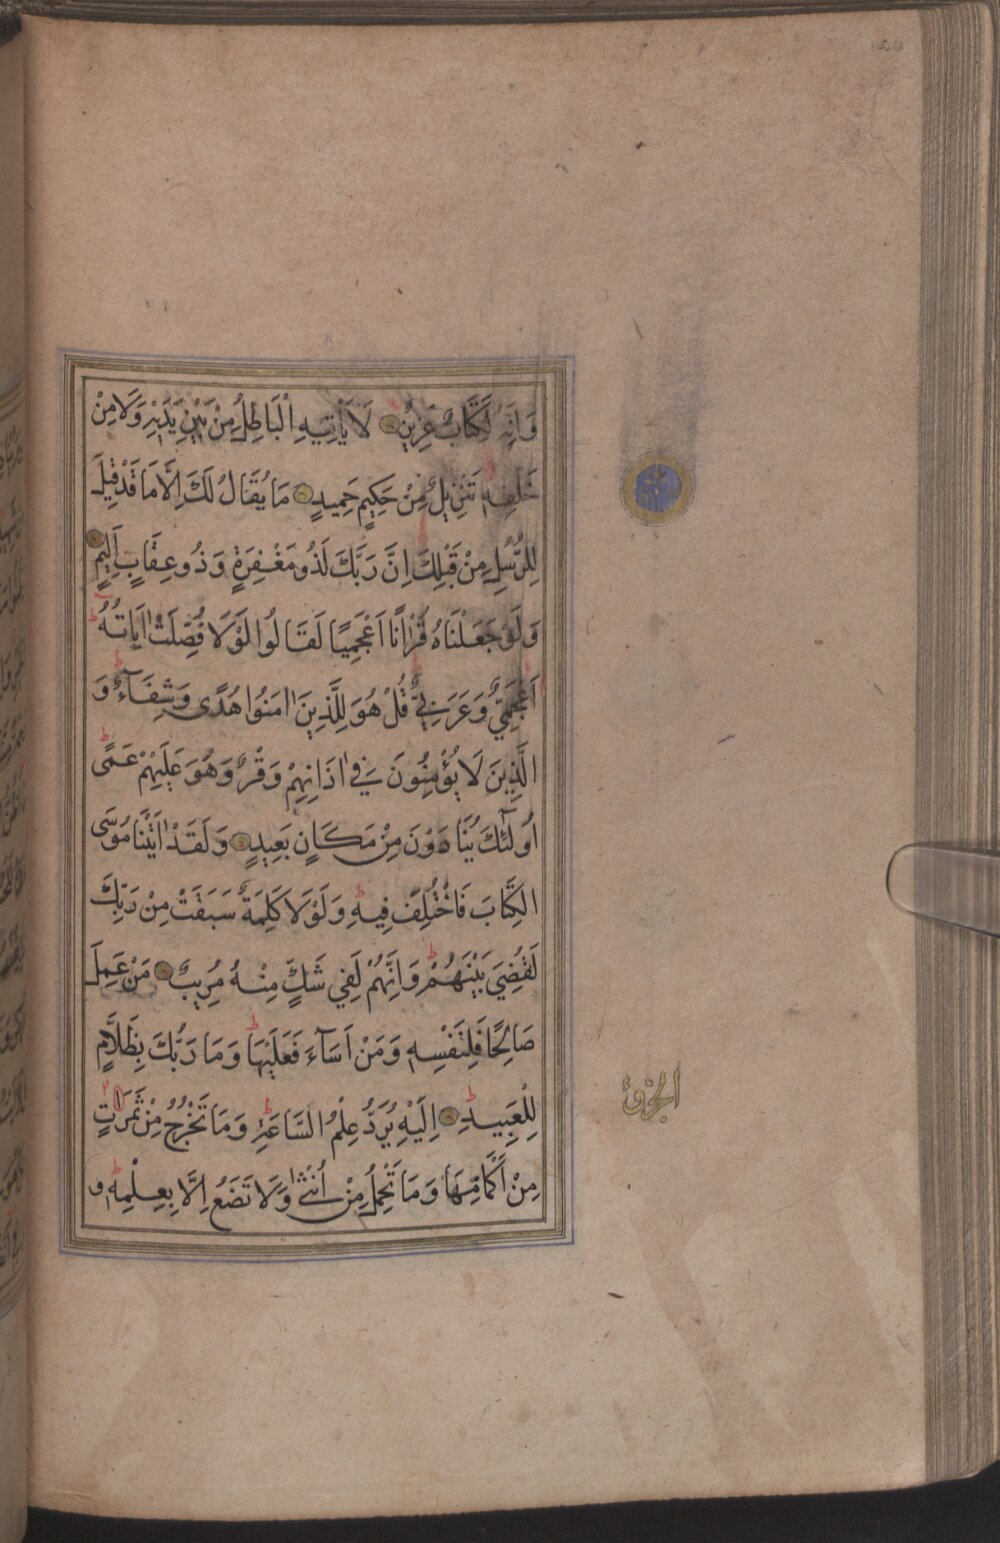 وَاِنَّهُ لَكِتَابٌ عَزِيزٌ لَا يَأْتِيهِ الْبَاطِلُ مِنْ بَيْنِ يَدَيْهِ وَلَا مِنْ
خَلْفِهِ تَنْزِيلٌ مِنْ حَكِيمٍ حَمِيدٍ مَا يُقَالُ لَكَ اِلَّا مَا قَدْ قِيلَ
لِلرُّسُلِ مِنْ قَبْلِكَ اِنَّ رَبَّكَ لَذُو مَغْفِرَةٍ وَذُو عِقَابٍ اَلِيمٍ
وَلَوْ جَعَلْنَاهُ قُرْاٰنًا اَعْجَمِيًا لَقَالُوا لَوْلَا فُصِّلَتْ اٰيَاتُهُ
اَعْجَمِيٌّ وَعَرَبِيٌّ قُلْ هُوَ لِلَّذِينَ اٰمَنُوا هُدًى وَشِفَآءٌ وَ
الَّذِينَ لَا يُؤْمِنُونَ فِي اٰذَانِهِمْ وَقْرٌ وَهُوَ عَلَيْهِمْ عَمًى
اُولٰٓئِكَ يُنَادَوْنَ مِنْ مَكَانٍ بَعِيدٍ وَلَقَدْ اٰتَيْنَا مُوسَى
الْكِتَابَ فَاخْتُلِفَ فِيهِ وَلَوْلَا كَلِمَةٌ سَبَقَتْ مِنْ رَبِّكَ
لَقُضِيَ بَيْنَهُمْ وَاِنَّهُمْ لَفِي شَكٍّ مِنْهُ مُرِيبٍ مَنْ عَمِلَ
صَالِحًا فَلِنَفْسِهِ وَمَنْ اَسَآءَ فَعَلَيْهَا وَمَا رَبُّكَ بِظَلَّامٍ
لِلْعَبِيدِ اِلَيْهِ يُرَدُّ عِلْمُ السَّاعَةِ وَمَا تَخْرُجُ مِنْ ثَمَرَاتٍ
مِنْ اَكْمَامِهَا وَمَا تَحْمِلُ مِنْ اُنْثٰى وَلَا تَضَعُ اِلَّا بِعِلْمِهِ وَ
الجزؤ